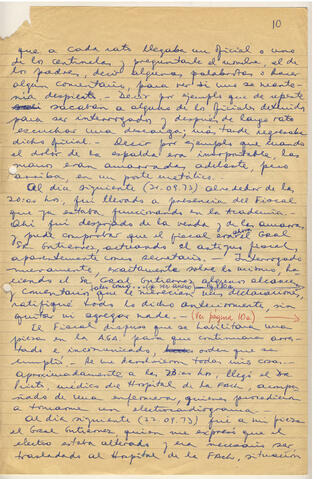 10
que a cada rato llegaba un oficial o uno
de los centinelas y preguntarle el nombre, el de
los padres, decir algunas palabrotas o hacer
algún comentario, para ver si uno se mante-
nía despierto. - Decir por ejemplo que de repente
sacaban a alguno de los oficiales detenidos
para ser interrogados y después de largo rato
escuchar una descarga; más tarde regresaba
dicho oficial. - Decir por ejemplo que cuando
el dolor de la espalda era insoportable, las
manos eran amarradas adelante, pero
arriba, en un poste metálico.
Al día siguiente (21.09.73) alrededor de las
20:00 hs, fui llevado a presencia del Fiscal
que ya estaba funcionando en la Academia.
Ahí fui despojado de la venda y de las amarras,
pude comprobar que el fiscal era el Gral
Sr. Gutiérrez, actuando el antiguo fiscal,
aparentemente como secretario. - Interrogado
nuevamente, exactamente sobre lo mismo, ha-
ciendo el Sr. Gral Gutiérrez algunos alcances
y comentarios que merecían mis declaraciones,
ratifiqué todo lo dicho anteriormente, sin
quitar ni agregar nada. - (Ver página 10a)
El Fiscal dispuso que se habilitara una
pieza en la AGA. para que continuara arres-
tado e incomunicado, orden que se
cumplió. - Me devolvieron todas mis cosas. -
Aproximadamente a las hs. llegó el Dr.
médico del Hospital de la FACH, acompa-
ñado de una enfermera, quienes procedieron
a tomarme un electrocardiograma. -
Al día siguiente (22.09.73) fué a mi pieza
el Gral Gutiérrez, quien me expresó que el
electro estaba alterado y era necesario ser
trasladado al Hospital de la FACH, situación